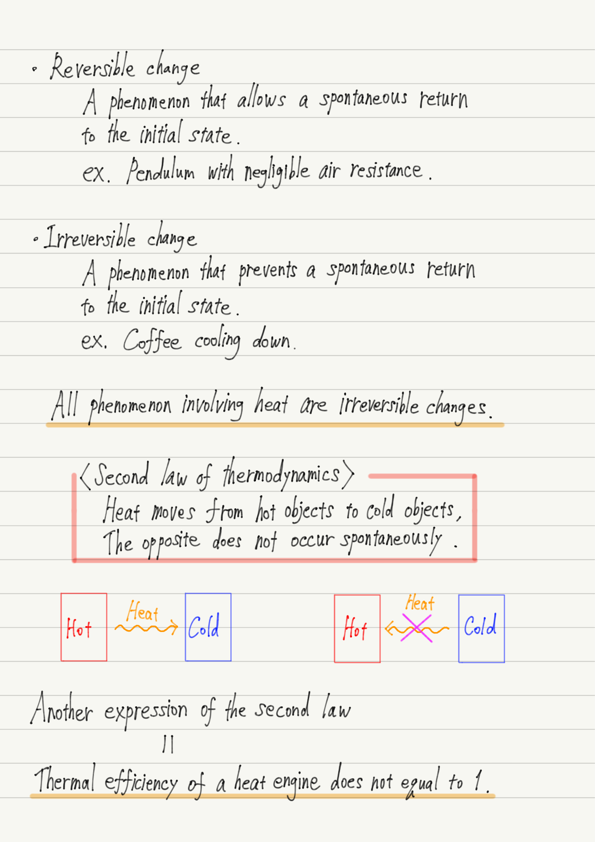 · Reversible change
A phenomenon that allows a spontaneous return
to the initial state.
ex. Pendulum with negligible air resistance.
· Irreversible change
A phenomenon that prevents a spontaneous return
to the initial state.
ex. Coffee cooling down.
All phenomenon involving heat are irreversible changes.
〈Second law of thermodynamics〉
Heat moves from hot objects to cold objects,
The opposite does not occur spontaneously.
Hot Heat Cold Hot Heat Cold
Another expression of the second law
||
Thermal efficiency of a heat engine does not equal to 1.